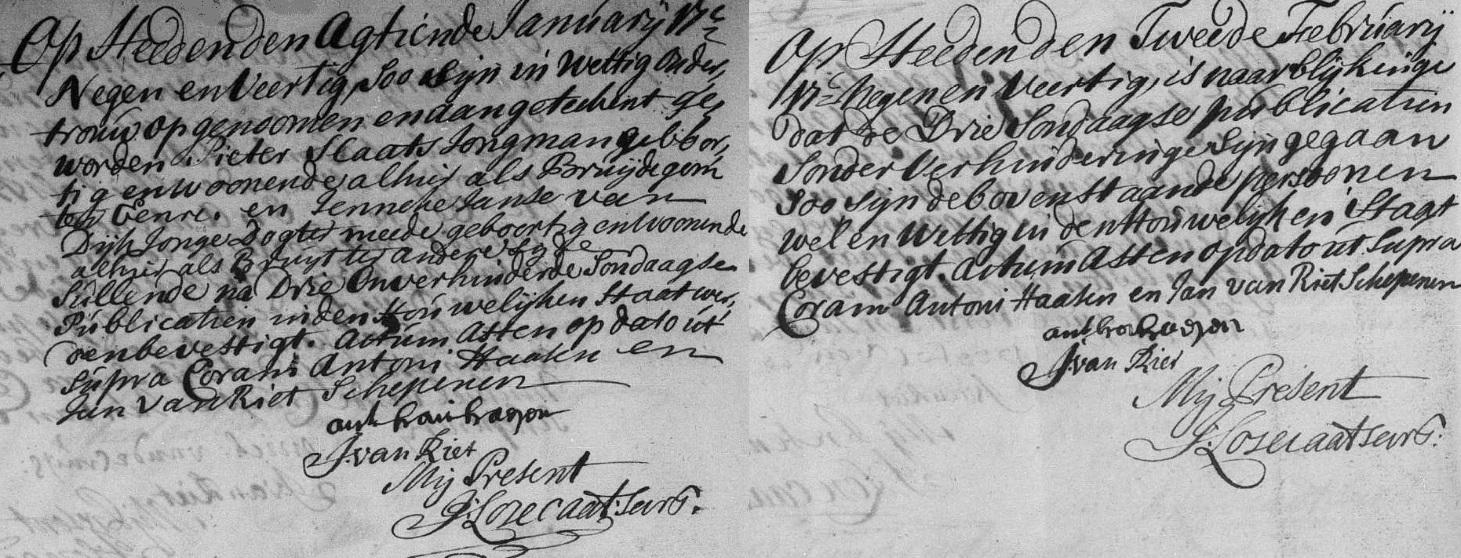 Op Heeden den Agtiende Januarij 17c
Negen en Veertig, Soo sijn in Wettig onder,
trouw opgenoomen en aangetekent ge,
worden Pieter Slaats Jongman geboor,
tig en woonende alhier als Bruijdegom
ter Eenre. en Jenneke Janse van
Dijk Jonge Dogter meede geboortig en woonende
alhier als Bruijt ter andere zyde
Sullende na Drie Onverhinderde Sondaagse
Publicatien in den Houwelijken Staat wer,
den bevestigt. Actum Asten op dato ut
Supra Coram Antoni Haaken en
Jan van Riet Schepenen
J. van Riet
Mij Present
J: Losecaat: Secrt.
Op Heeden den Tweede Februarij
17c Negen en Veertig, is naar blijkinge
dat de Drie Sondaagse publicatien
Sonder Verhinderinge Sijn gegaan
Soo sijn de bovenstaande persoonen
wel en Wettig in den Houwelijken Stagt
bevestigt. Actum Asten op dato ut Supra
Coram Antoni Haaken en Jan van Riet Schepenen
J. van Riet
Mij Present
J: Losecaat Secrt: